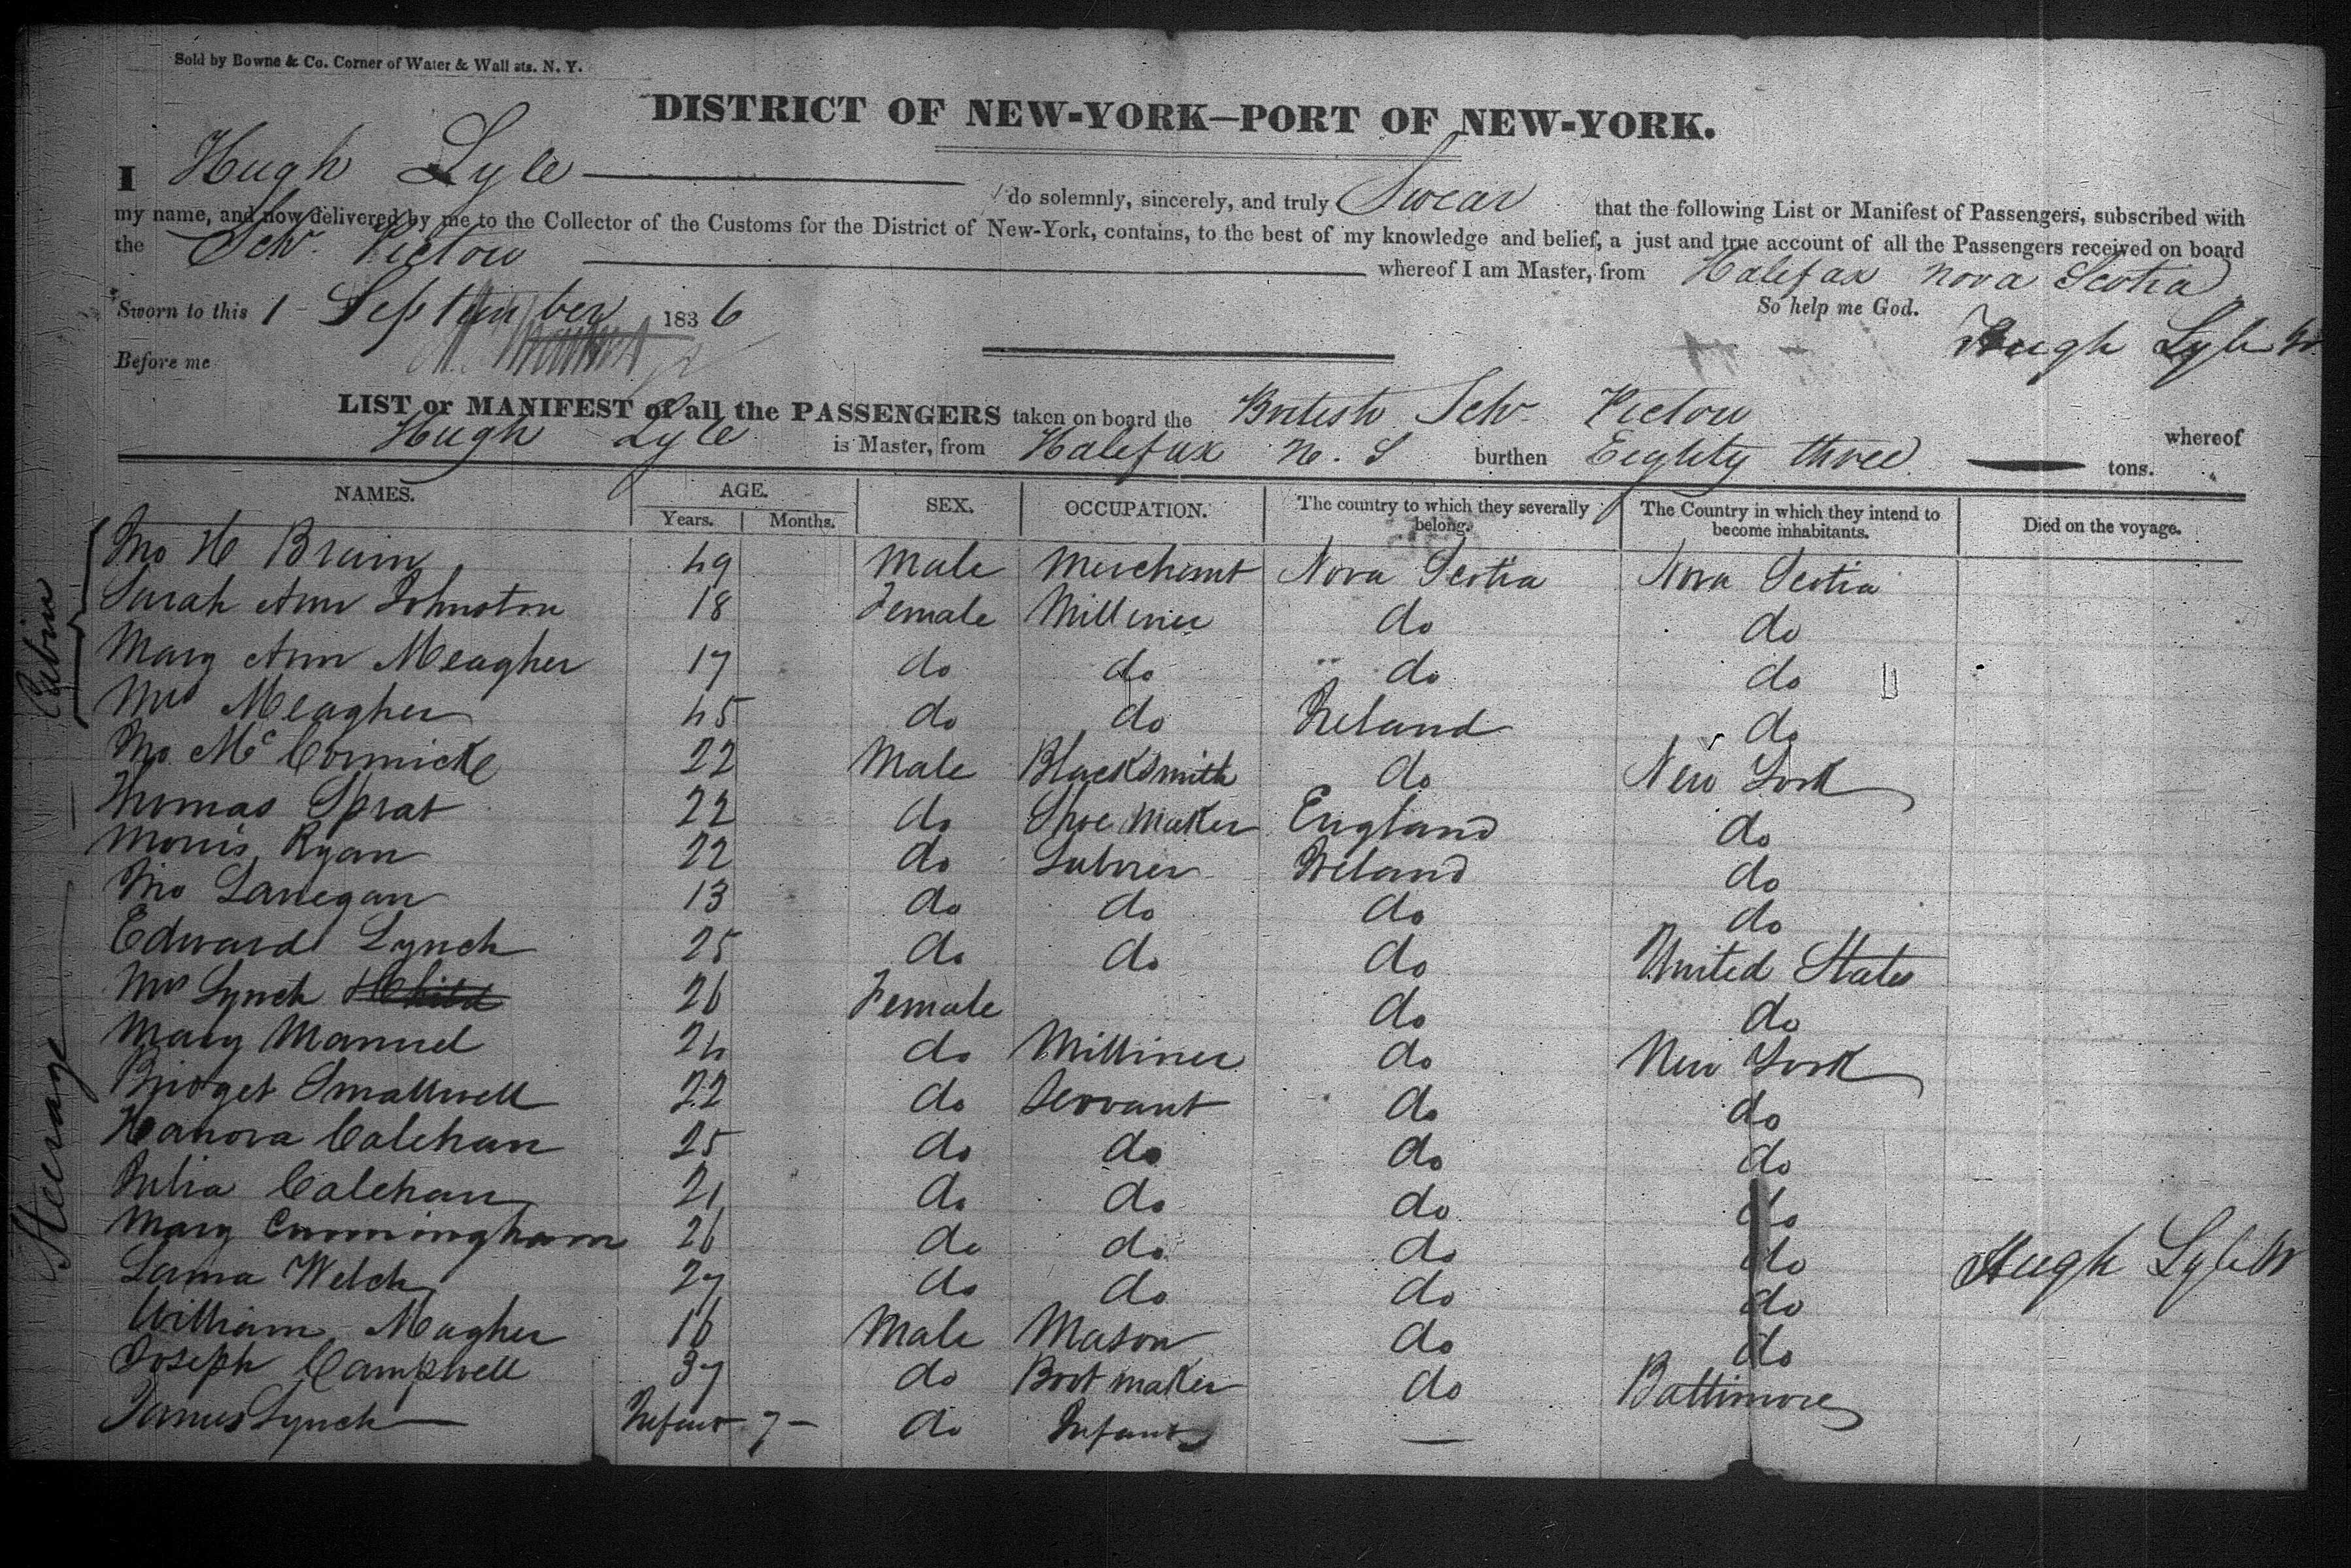 Sold by Bowne & Co. Corner of Water & Wall sts. N. Y.
DISTRICT OF NEW-YORK—PORT OF NEW-YORK.
I Hugh Lyle do solemnly, sincerely, and truly Swear that the following List or Manifest of Passengers, subscribed with
my name, and now delivered by me to the Collector of the Customs for the District of New-York, contains, to the best of my knowledge and belief, a just and true account of all the Passengers received on board
the Schr Pictou whereof I am Master, from Halifax Nova Scotia
So help me God.
Sworn to this 1 September 1836
Hugh Lyle
Before me
LIST or MANIFEST of all the PASSENGERS taken on board the British Schr Pictou whereof
Hugh Lyle is Master, from Halifax N. S burthen Eighty three tons.
NAMES. AGE. SEX. OCCUPATION. The country to which they severally belong. The Country in which they intend to become inhabitants. Died on the voyage.
Years. Months.
Cabin
Jno H Brain 49 Male Merchant Nova Scotia Nova Scotia
Sarah Ann Johnston 18 Female Milliner do do
Mary Ann Meagher 17 do do do do
Mrs Meagher 45 do do Ireland do
Jno McCormick 22 Male Blacksmith do New York
Thomas Sprat 22 do Shoe Maker England do
Morris Ryan 22 do Labrer Ireland do
Jno Lanegan 13 do do do do
Edward Lynch 25 do do do United States
Mrs Lynch 26 Female do do
Steerage
Mary Manuel 24 do Milliner do New York
Bridget Smallwell 22 do Servant do do
Hanora Calehan 25 do do do do
Julia Calehan 21 do do do do
Mary Cunningham 26 do do do do
Lama Welch 27 do do do do
Hugh Lyle
William Magher 16 Male Mason do do
Joseph Campwell 37 do Boot maker do Baltimore
James Lynch Infant 7 do Infant —